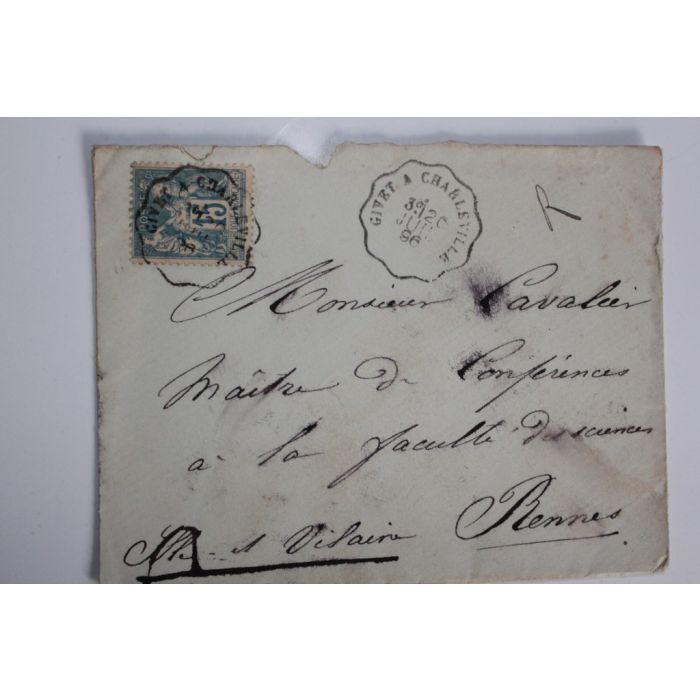 15
GIVET A CHARLEVILLE
GIVET A CHARLEVILLE
96
R
Monsieur Cavalier
Maître de Conférences
à la faculté des sciences
Rennes
Ille et Vilaine